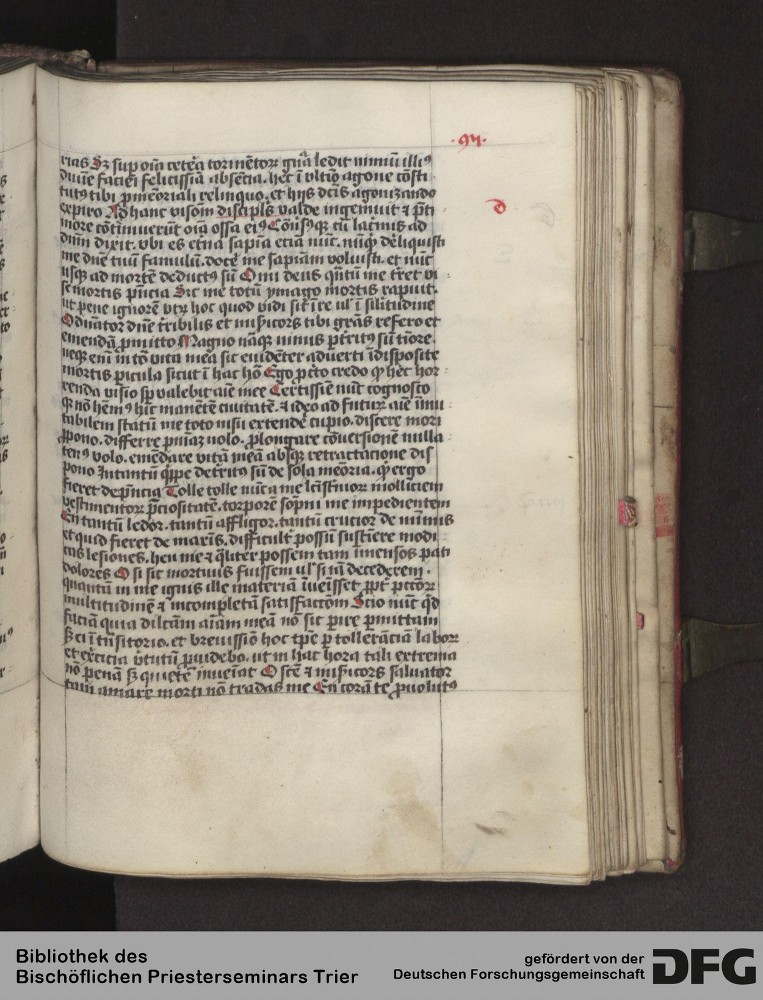 ·911·
rias Sz sup oīa cetēa tormētoꝝ gͣuiᵃ ledit nimiū illiꝰ
diuīe faciei felicissīa absētia. hec ī vltīo agone cōsti
tutꝰ tibi p̄mēoriali relinquo. et hijs dc̄is agonizando
expiro Ad hanc visiōm discipl̄s valde ingemuit ⁊ p̄ti
more cōtimuerūt oīa ossa eiꝰ Cōuͥsꝰqꝫ cū lac̄mis ad
d
dn̄m dixit. vbi es etn̄a sapīa
me dn̄e tuū famulū. docē me sapiam voluisti. et nūc
usqꝫ ad mortē deductꝰ sū O mi deus qn̄tū me t̄ret vi
se mortis pn̄cia Sic me totū ymago mortis rapuit.
ut pene ignorē vtꝝ hoc quod vidi sit ī re ul̓ ī silitudine
O dn̄ator dn̄e t̄ribilis et mīs̄icors tibi gr̄as refero et
emendā p̄mitto Magno nāqꝫ nimis pt̄ritꝰ sū tiōre.
neqꝫ enī ī tō vita mea sic euidēter aduerti īdisposite
mortis picula sicut ī hac hō Ego p̄cto credo qꝫ hec hor
renda visio sp̄ valebit aīe mee Certissīe nūc cognosco
qꝫ nō hēmꝰ hic manētē ciuitatē. ⁊ ideo ad futuꝝ aīe īmu
tabilem statū me toto nisu extendē cupio. discere mori
p̄pono. differre pn̄iaꝫ nolo. p̄longare cōuersionē nulla
tenꝰ volo. emēdare vitā meā absqꝫ retractatione dis
pono Intantū quippe det̄ritꝰ sū de sola mēoria. qͥ ergo
fieret de pn̄cia Tolle tolle nūc a me lc̄isternior molliciem
vestimentoꝝ p̄ciositatē. torporē sop̄ni me impedientem
En tantū ledor. tantū affligor. tantū crucior de minimis
et quid fieret de maxīs. difficult̄ possū sustiere modi
cas lesiones. heu me ⁊ qͣliter possem tam īmensos pati
dolores O si sic mortuus fuissem ul̓ si īā decederem.
quantā in me ignis ille materiā īuēisset ppt̄ pctōꝝ
multitudinē ⁊ incompletā satisfactōm Scio nūc qd̄
faciā quia dilc̄am aīam meā nō sic pire pmittam
sꝫ ei ī trāsitorio. et breuissiō hoc tpe p tollerāciā laboꝝ
et exercicia v̓tutū puidebo. ut in hac hora tali extrema
nō penā sꝫ quietē inueīat O sc̄e ⁊ mīs̄icors saluator
tam amare morti nō tradas me En corā te p̄uolutꝰ
Bibliothek des
Bischöflichen Priesterseminars Trier
gefördert von der
Deutschen Forschungsgemeinschaft
DFG